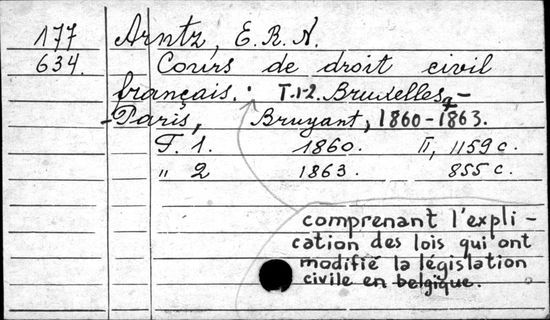 177 Arntz, E. R. N.
634. Cours de droit civil
français. T.1-2. Bruxelles,-
-Paris, Bruyant, 1860-1863.
T. 1. 1860. II, 1159 c.
" 2 1863. 855 c.
comprenant l'expli-
cation des lois qui ont
modifié la législation
civile en belgique.